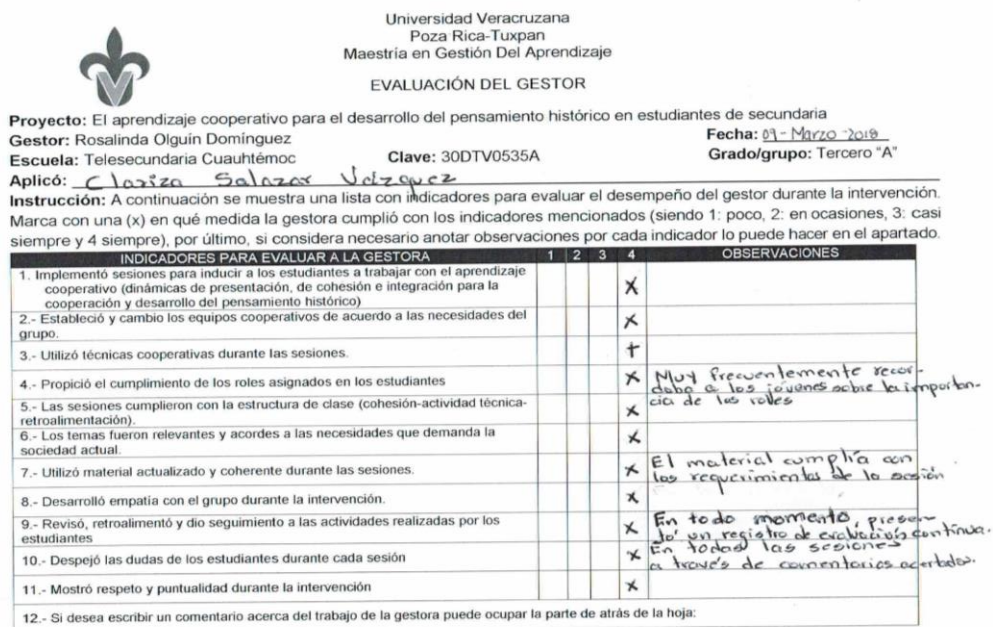 Universidad Veracruzana
Poza Rica-Tuxpan
Maestría en Gestión Del Aprendizaje
EVALUACIÓN DEL GESTOR
Proyecto: El aprendizaje cooperativo para el desarrollo del pensamiento histórico en estudiantes de secundaria
Gestor: Rosalinda Olguín Domínguez Fecha: 09-Marzo-2018
Escuela: Telesecundaria Cuauhtémoc Clave: 30DTV0535A Grado/grupo: Tercero "A"
Aplicó: Clariza Salazar Velzquez
Instrucción: A continuación se muestra una lista con indicadores para evaluar el desempeño del gestor durante la intervención.
Marca con una (x) en qué medida la gestora cumplió con los indicadores mencionados (siendo 1: poco, 2: en ocasiones, 3: casi
siempre y 4 siempre), por último, si considera necesario anotar observaciones por cada indicador lo puede hacer en el apartado.
INDICADORES PARA EVALUAR A LA GESTORA 1 2 3 4 OBSERVACIONES
1. Implementó sesiones para inducir a los estudiantes a trabajar con el aprendizaje
cooperativo (dinámicas de presentación, de cohesión e integración para la
cooperación y desarrollo del pensamiento histórico) X
2.- Estableció y cambio los equipos cooperativos de acuerdo a las necesidades del
grupo. X
3.- Utilizó técnicas cooperativas durante las sesiones. X
4.- Propició el cumplimiento de los roles asignados en los estudiantes X
Muy frecuentemente recor-
daba a los jóvenes sobre la importan-
cia de los roles
5.- Las sesiones cumplieron con la estructura de clase (cohesión-actividad técnica-
retroalimentación). X
6.- Los temas fueron relevantes y acordes a las necesidades que demanda la
sociedad actual. X
7.- Utilizó material actualizado y coherente durante las sesiones. X
El material cumplía con
los requerimientos de la sesión
8.- Desarrolló empatía con el grupo durante la intervención. X
9.- Revisó, retroalimentó y dio seguimiento a las actividades realizadas por los
estudiantes X
En todo momento, presen-
tó un registro de evaluación continua.
10.- Despejó las dudas de los estudiantes durante cada sesión X
En todas las sesiones
a través de comentarios acertados.
11.- Mostró respeto y puntualidad durante la intervención X
12.- Si desea escribir un comentario acerca del trabajo de la gestora puede ocupar la parte de atrás de la hoja: